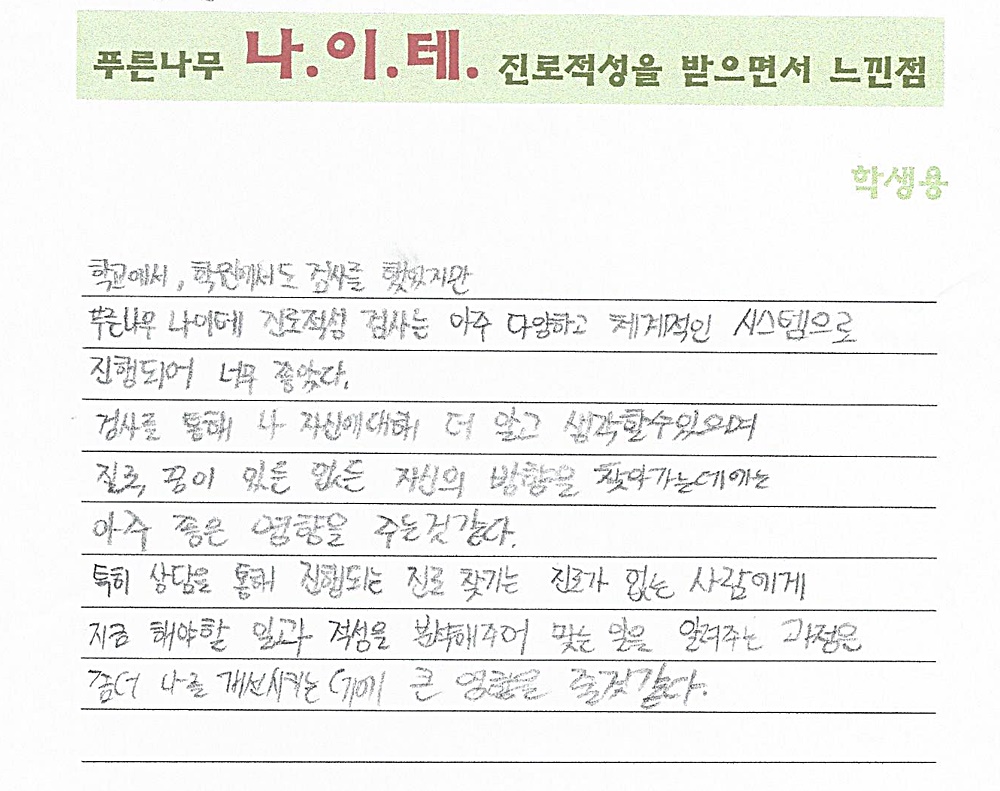 푸른나무 나.이.테. 진로적성을 받으면서 느낀점
학생용
학교에서, 학원에서도 검사를 했었지만
푸른나무 나이테 진로적성 검사는 아주 다양하고 체계적인 시스템으로
진행되어 너무 좋았다.
검사를 통해 나 자신에대해 더 알고 생각할수있으며
진로, 꿈이 있든 없든 자신의 방향을 찾아가는데에는
아주 좋은 영향을 주는것같다.
특히 상담을 통해 진행되는 진로 찾기는 진로가 없는 사람에게
지금 해야할 일과 적성을 분석해주어 맞는 일을 알려주는 과정은
좀더 나를 개선시키는 데에 큰 영향을 줄것같다.